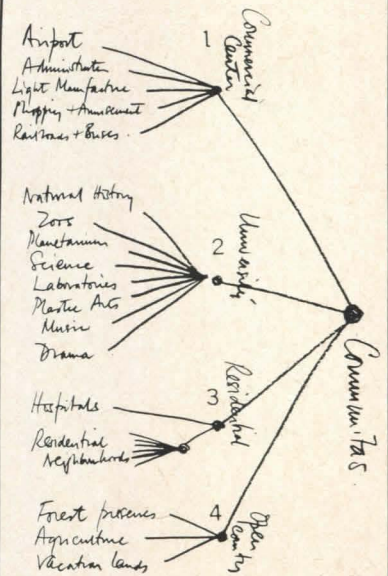 1
Commercial
Center
Airport
Administration
Light Manufacture
Shopping + Amusement
Railroads + Buses
2
University
Natural History
Zoos
Planetarium
Science
Laboratories
Plastic Arts
Music
Drama
3
Residential
Hospitals
Residential
Neighborhoods
4
Open
Country
Forest preserves
Agriculture
Vacation lands
Communitas.